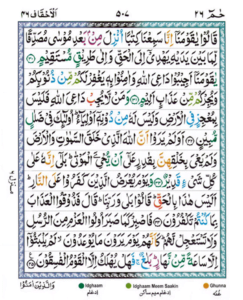 الاحقاف ٤٦ ٥٠٧ حٰمٓ ٢٦
قَالُوْا يٰقَوْمَنَاۤ اِنَّا سَمِعْنَا كِتٰبًا اُنْزِلَ مِنْۢ بَعْدِ مُوْسٰى مُصَدِّقًا
لِّمَا بَيْنَ يَدَيْهِ يَهْدِيْۤ اِلَى الْحَقِّ وَ اِلٰى طَرِيْقٍ مُّسْتَقِيْمٍ
يٰقَوْمَنَاۤ اَجِيْبُوْا دَاعِيَ اللّٰهِ وَ اٰمِنُوْا بِهٖ يَغْفِرْ لَكُمْ مِّنْ ذُنُوْبِكُمْ
وَ يُجِرْكُمْ مِّنْ عَذَابٍ اَلِيْمٍ وَ مَنْ لَّا يُجِبْ دَاعِيَ اللّٰهِ فَلَيْسَ
بِمُعْجِزٍ فِي الْاَرْضِ وَ لَيْسَ لَهٗ مِنْ دُوْنِهٖۤ اَوْلِيَآءُ اُولٰٓىِٕكَ فِيْ ضَلٰلٍ
مُّبِيْنٍ اَوَ لَمْ يَرَوْا اَنَّ اللّٰهَ الَّذِيْ خَلَقَ السَّمٰوٰتِ وَ الْاَرْضَ
وَ لَمْ يَعْيَ بِخَلْقِهِنَّ بِقٰدِرٍ عَلٰۤى اَنْ يُّحْيِۦَ الْمَوْتٰى بَلٰۤى اِنَّهٗ عَلٰى
كُلِّ شَيْءٍ قَدِيْرٌ وَ يَوْمَ يُعْرَضُ الَّذِيْنَ كَفَرُوْا عَلَى النَّارِ
اَلَيْسَ هٰذَا بِالْحَقِّ قَالُوْا بَلٰى وَ رَبِّنَا قَالَ فَذُوْقُوا الْعَذَابَ
بِمَا كُنْتُمْ تَكْفُرُوْنَ فَاصْبِرْ كَمَا صَبَرَ اُولُوا الْعَزْمِ مِنَ الرُّسُلِ
وَ لَا تَسْتَعْجِلْ لَّهُمْ كَاَنَّهُمْ يَوْمَ يَرَوْنَ مَا يُوْعَدُوْنَ لَمْ يَلْبَثُوْۤا
اِلَّا سَاعَةً مِّنْ نَّهَارٍ بَلٰغٌ فَهَلْ يُهْلَكُ اِلَّا الْقَوْمُ الْفٰسِقُوْنَ
Idghaam Idghaam Meem Saakin Ghunna
ادغام ادغام میم ساکن غنہ